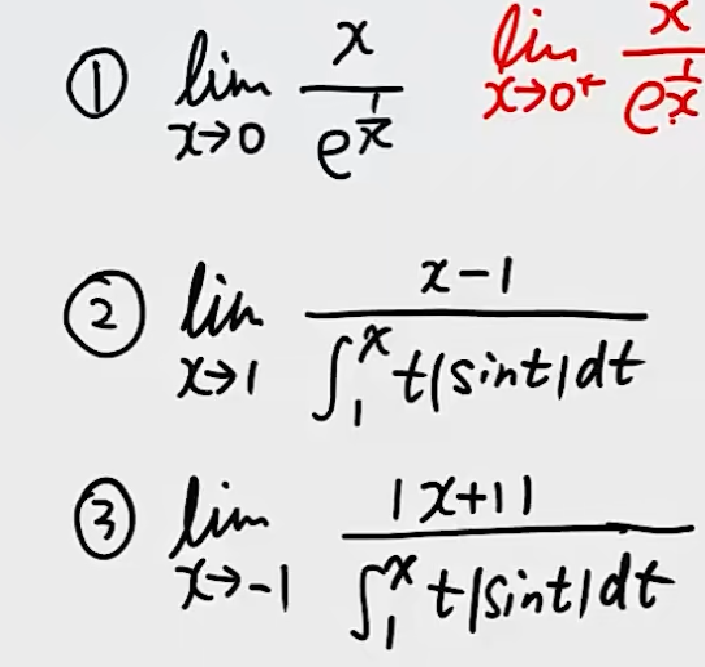 ① lim x→0 x/e^(1/x) lim x→0+ x/e^(1/x)
② lim x→1 (x-1)/∫₁ˣ t|sint|dt
③ lim x→-1 |x+1|/∫₁ˣ t|sint|dt